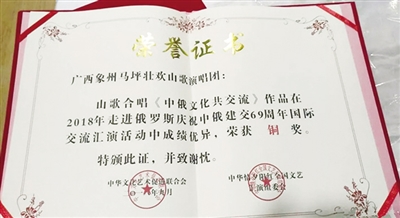 荣誉证书
广西象州马坪壮欢山歌演唱团：
山歌合唱《中俄文化共交流》作品在
2018年走进俄罗斯庆祝中俄建交69周年国际
交流汇演活动中成绩优异，荣获 铜 奖。
特颁此证，并致谢忱。
中华文化艺术促进联合会
中华情夕阳红全国文艺
年九月
演组委会